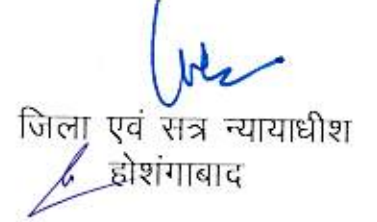 जिला एवं सत्र न्यायाधीश
होशंगाबाद